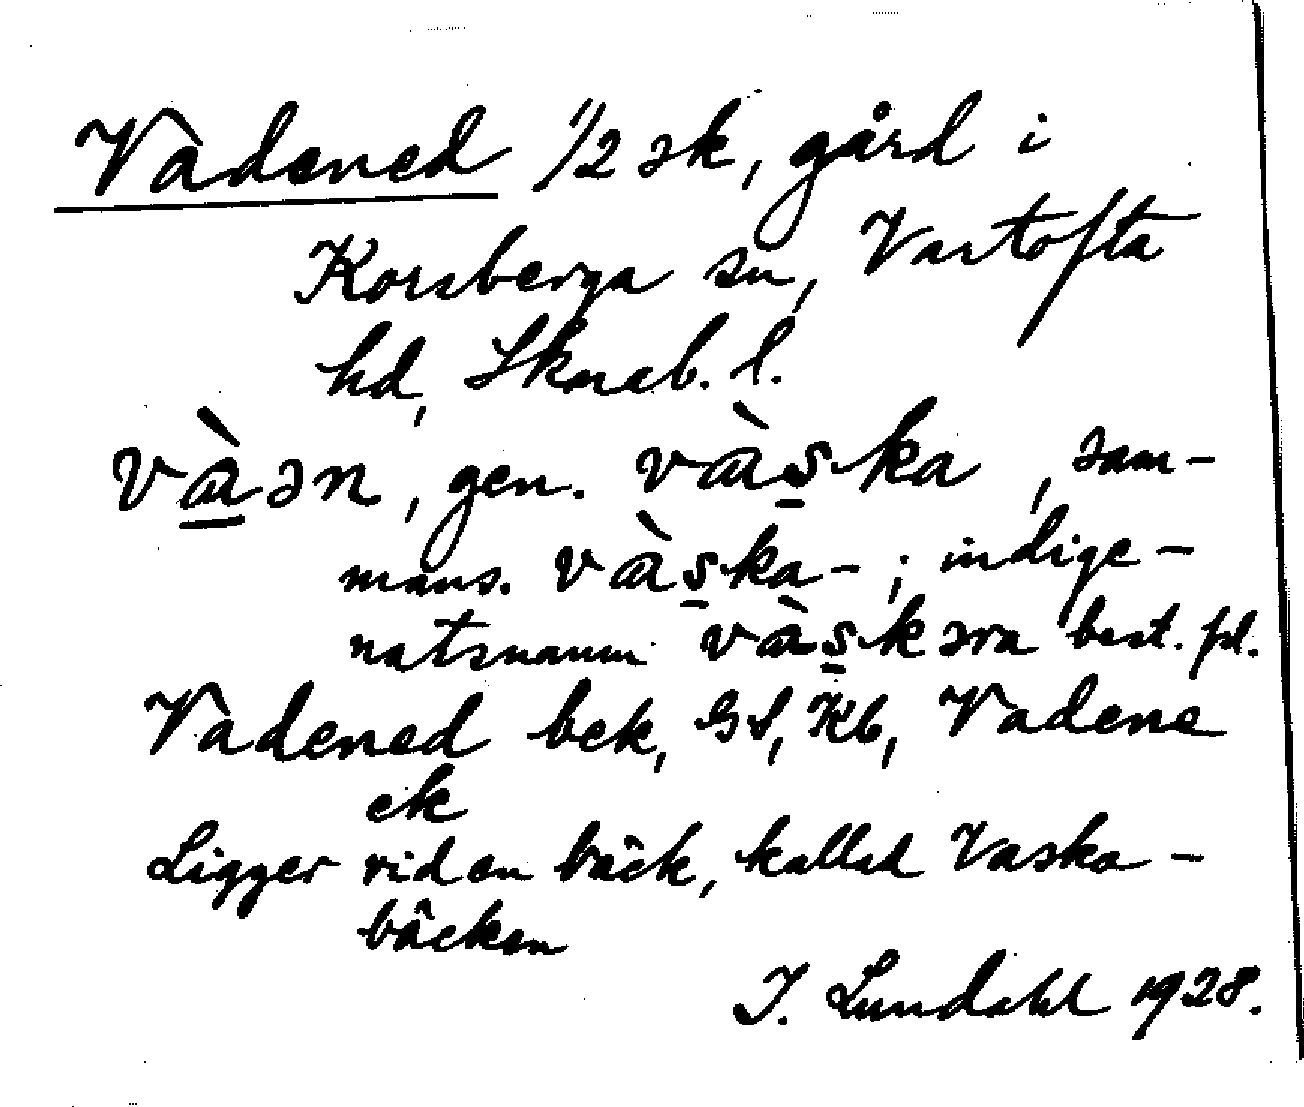 Vadened 1/2 sk, gård i
Korsberga sn, Vartofta
hd, Skarab. l.
vàən, gen. vàs̱ka, sam-
mans. vàs̱ka-; indige-
natsnamn vàs̱kəra best. pl.
Vadened bek, GS, Kb, Vadene
ek
Ligger vid en bäck, kallad Vaska-
bäcken
I. Lundahl 1928.